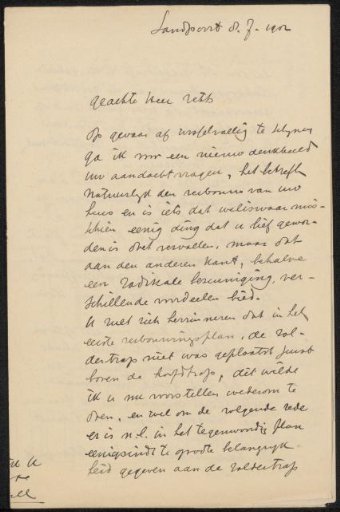 Sandpoort 8.7.1902
geachte Heer Veth
Op gevaar af wispelturig te schijnen
ga ik voor een nieuw denkbeeld
uw aandacht vragen, het betreft
natuurlijk den verbouw van uw
huis en is iets dat weliswaar mis-
schien eenig ding dat u lief gewor-
den is doet vervallen, maar dat
aan den anderen kant, behalve
een radikale bezuiniging, ver-
schillende voordeelen bied.
U zult zich herinneren dat in het
eerste verbouwingsplan, de zol-
dertrap niet was geplaatst juist
boven de hoofdtrap, dit wilde
ik u nu voorstellen wederom te
doen, en wel om de volgende rede
er is n.l. in het tegenwoordig plan
eenigszindt te groote belangrijk-
heid gegeven aan de zoldertrap